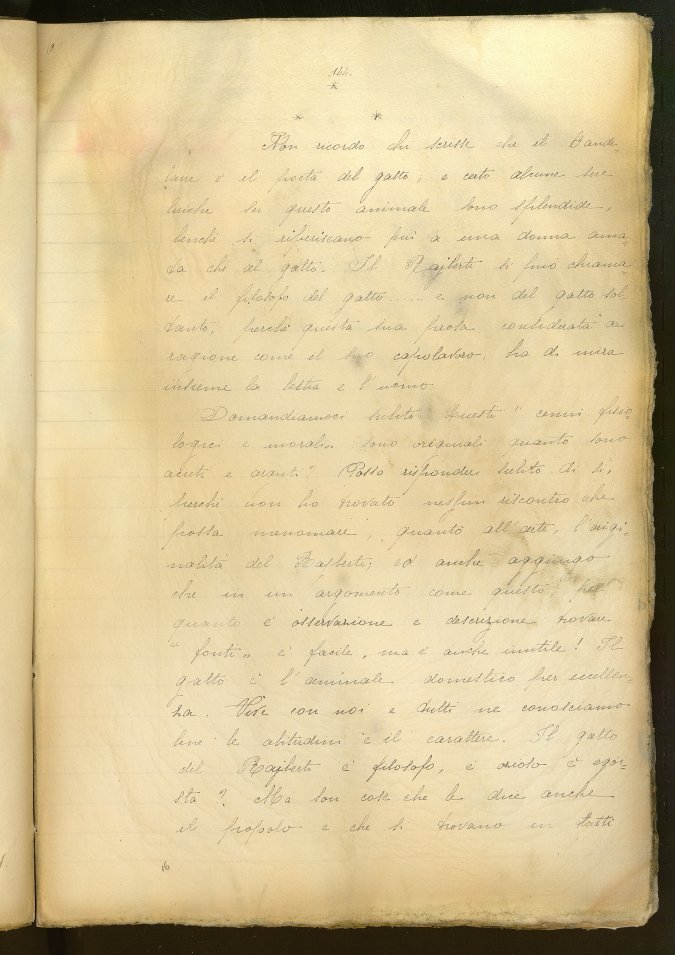 144.
*
* *
Non ricordo chi scrisse che il Baude-
laire è il poeta del gatto; e certo alcune sue
liriche su questo animale sono splendide,
benchè si riferiscano più a una donna ama-
ta che al gatto. Il Rajberti si può chiama-
re il filosofo del gatto..... e non del gatto sol
tanto, perchè questa sua prosa, considerata a
ragione come il suo capolavoro, ha di mira
insieme la bestia e l'uomo.
Domandiamoci subito. Questi "cenni fisio-
logici e morali" sono originali quanto sono
acuti e arguti? Posso rispondere subito di sì,
perchè non ho trovato nessun riscontro che
possa menomare, quanto all'arte, l'origi-
nalità del Rajberti; ed anche aggiungo
che in un argomento come questo, per
quanto è osservazione e descrizione trovare
"fonti" è facile, ma è anche inutile! Il
gatto è l'animale domestico per eccellen-
za. Vive con noi e tutti ne conosciamo
bene le abitudini e il carattere. Il gatto
del Rajberti è filosofo, è ozioso è egoi-
sta? Ma son cose che le dice anche
il popolo e che si trovano in tutti
16